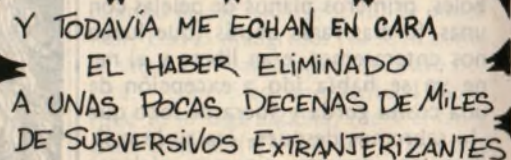 Y TODAVÍA ME ECHAN EN CARA
EL HABER ELIMINADO
A UNAS POCAS DECENAS DE MILES
DE SUBVERSIVOS EXTRANJERIZANTES